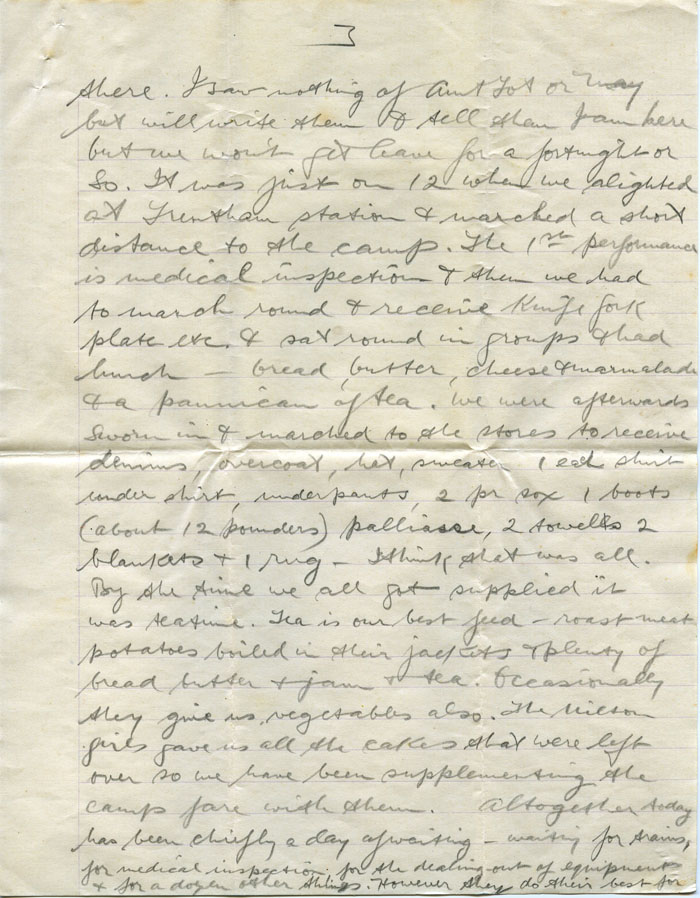 3
there. I saw nothing of Aunt Lot or May
but will write them & tell them I am here
but we won't get leave for a fortnight or
so. It was just on 12 when we alighted
at Trentham station & marched a short
distance to the camp. The 1st performance
is medical inspection & then we had
to march round & receive knife fork
plate etc. & sat round in groups & had
lunch — bread, butter, cheese & marmalade
& a pannican of tea. We were afterwards
sworn in & marched to the stores to receive
denims, overcoat, hat, sweater 1 each shirt
under shirt, underpants, 2 pr sox 1 boots
(about 12 pounders) palliasse, 2 towells 2
blankets & 1 rug – I think that was all.
By the time we all got supplied it
was teatime. Tea is our best feed – roast meat
potatoes boiled in their jackets & plenty of
bread butter & jam & tea. Occasionally
they give us vegetables also. The
girls gave us all the cakes that were left
over so we have been supplementing the
camp fare with them. Altogether today
has been chiefly a day of waiting – waiting for trains,
for medical inspection, for the dealing out of equipment
& for a dozen other things. However they do their best for